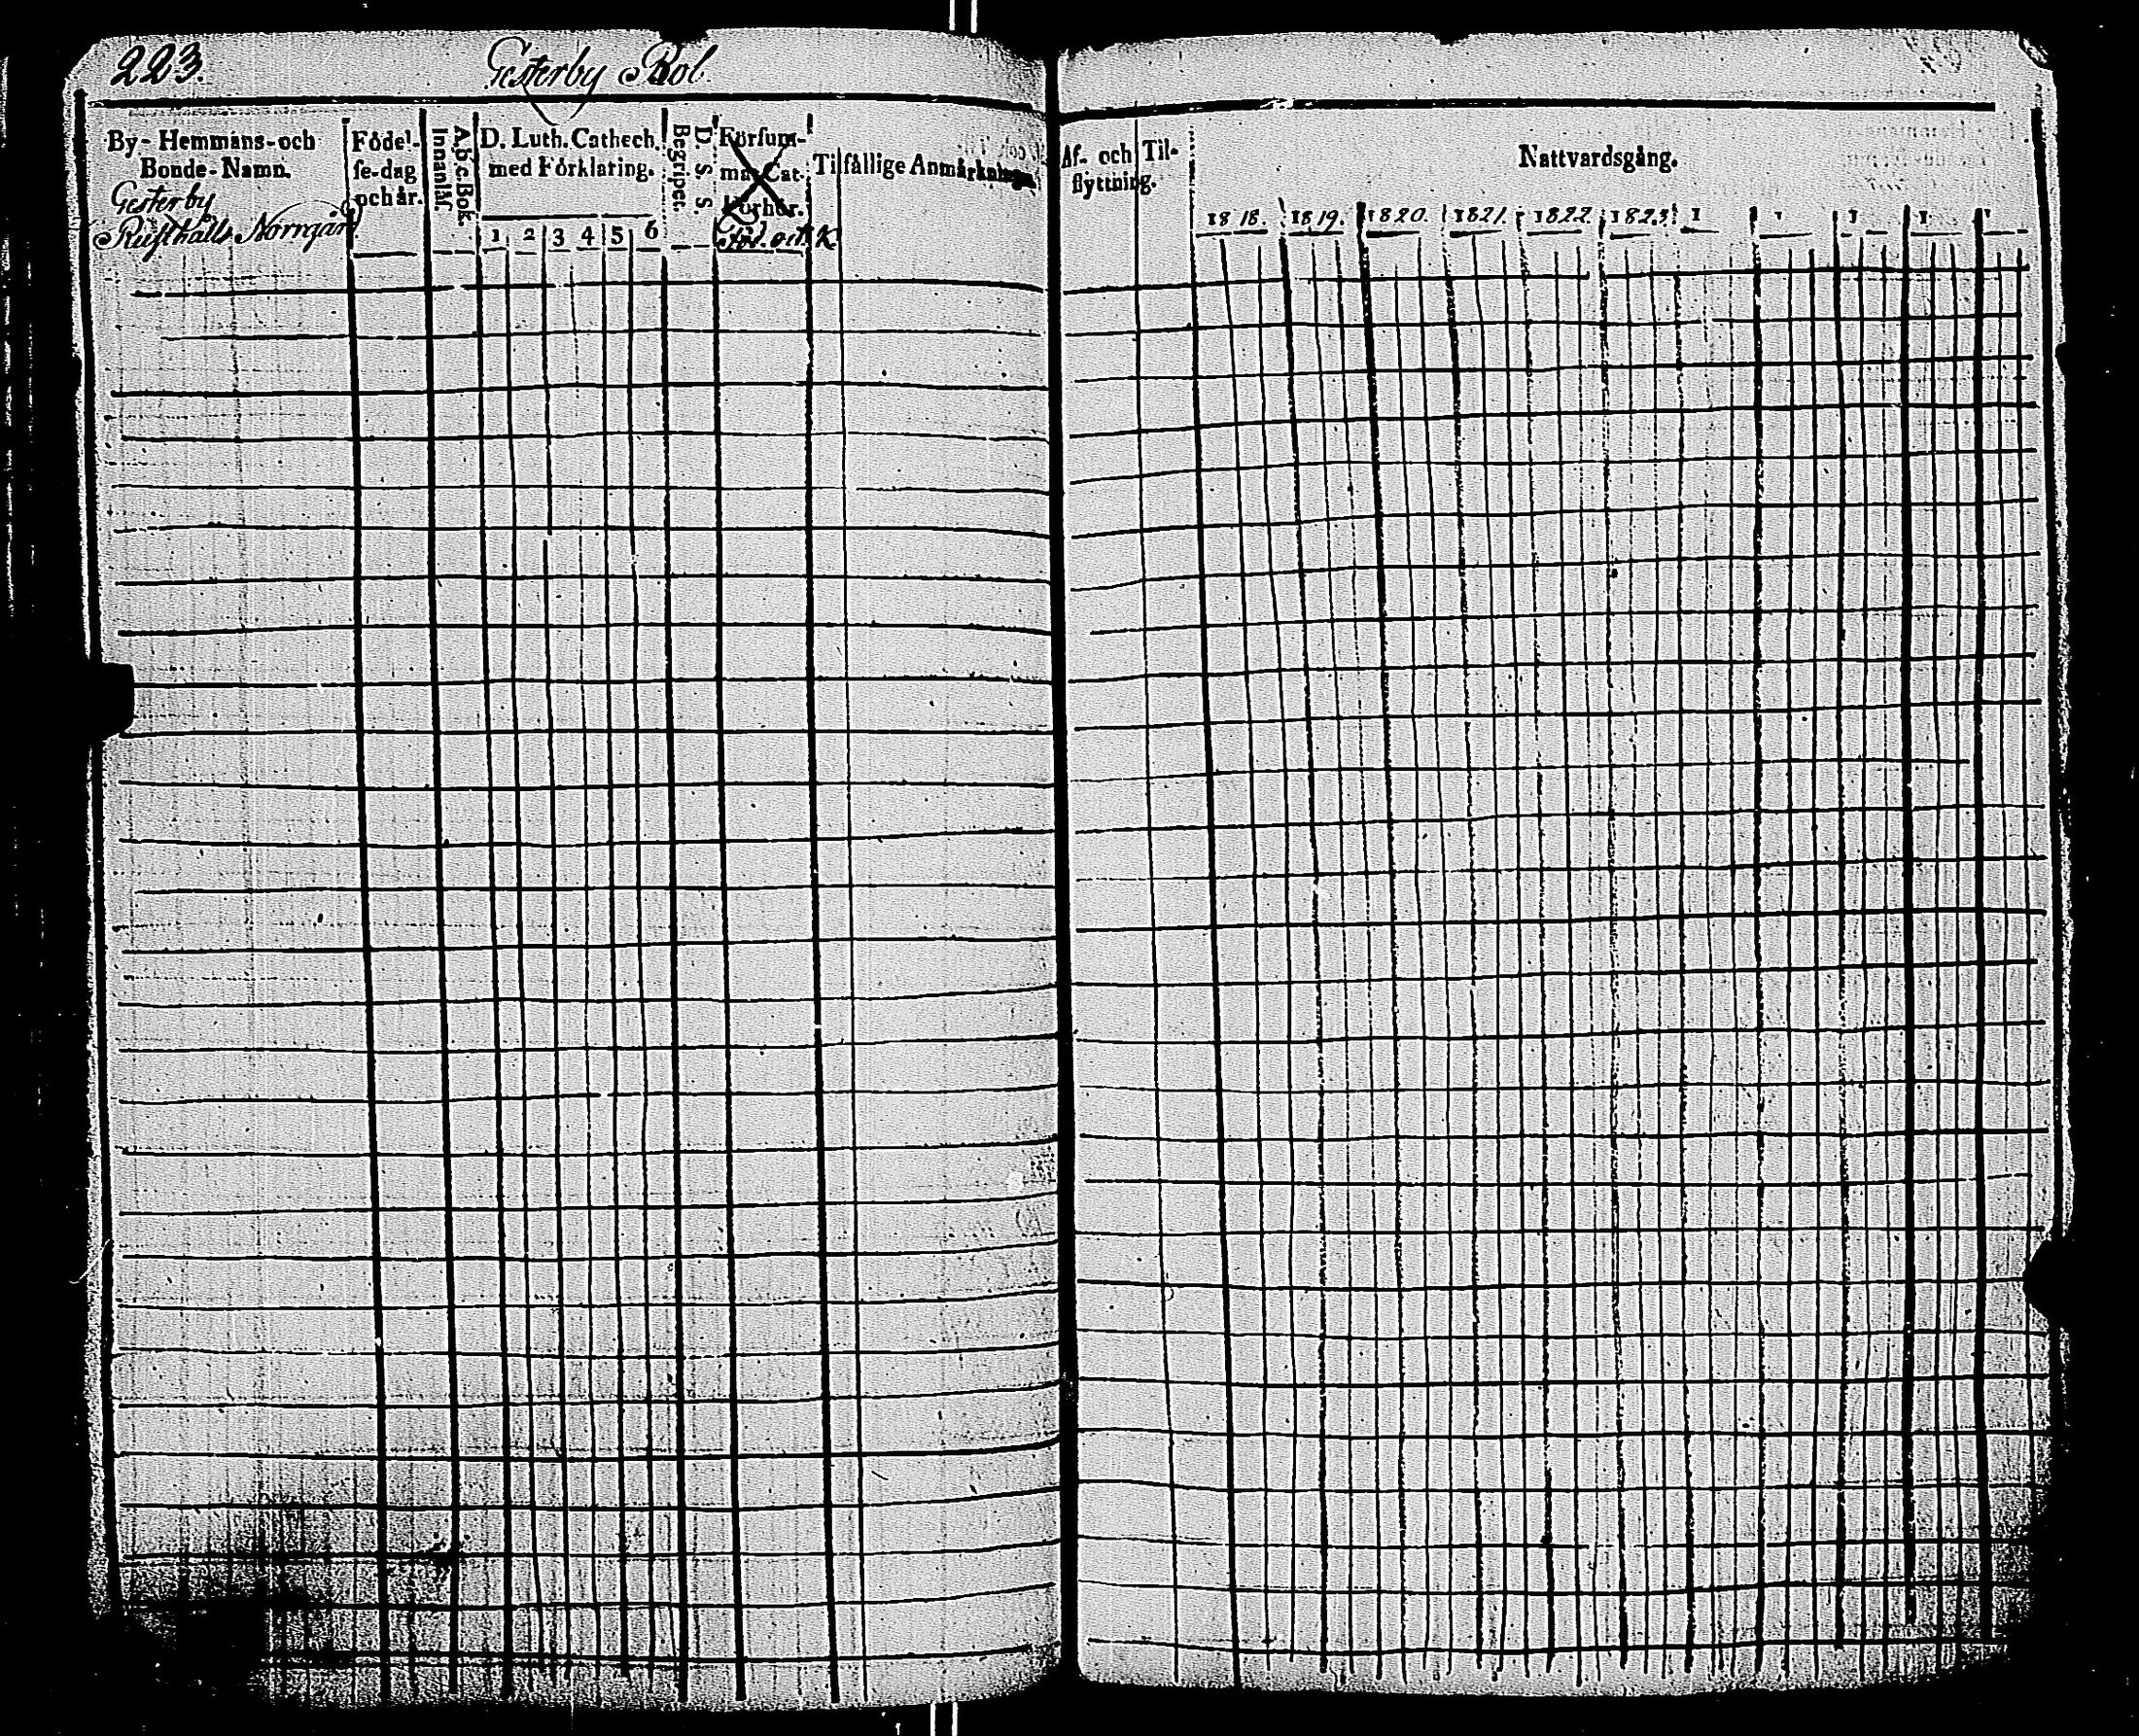 223.
Gesterby Bol
By- Hemmans- och
Bonde- Namn.
Gesterby
Rusthålls Norrgård
Födel-
se-dag
och år.
A.b.c. Bok.
Innanläs.
D. Luth. Cathech.
med Förklaring.
1 2 3 4 5 6
D. S. S. S.
Begripet.
Försum-
mat Cat.
förhör.
K.
Tilfällige Anmärkningar
Af- och Til-
flyttning.
Nattvardsgång.
1818. 1819. 1820. 1821. 1822. 1823. 1 1 1 1 1